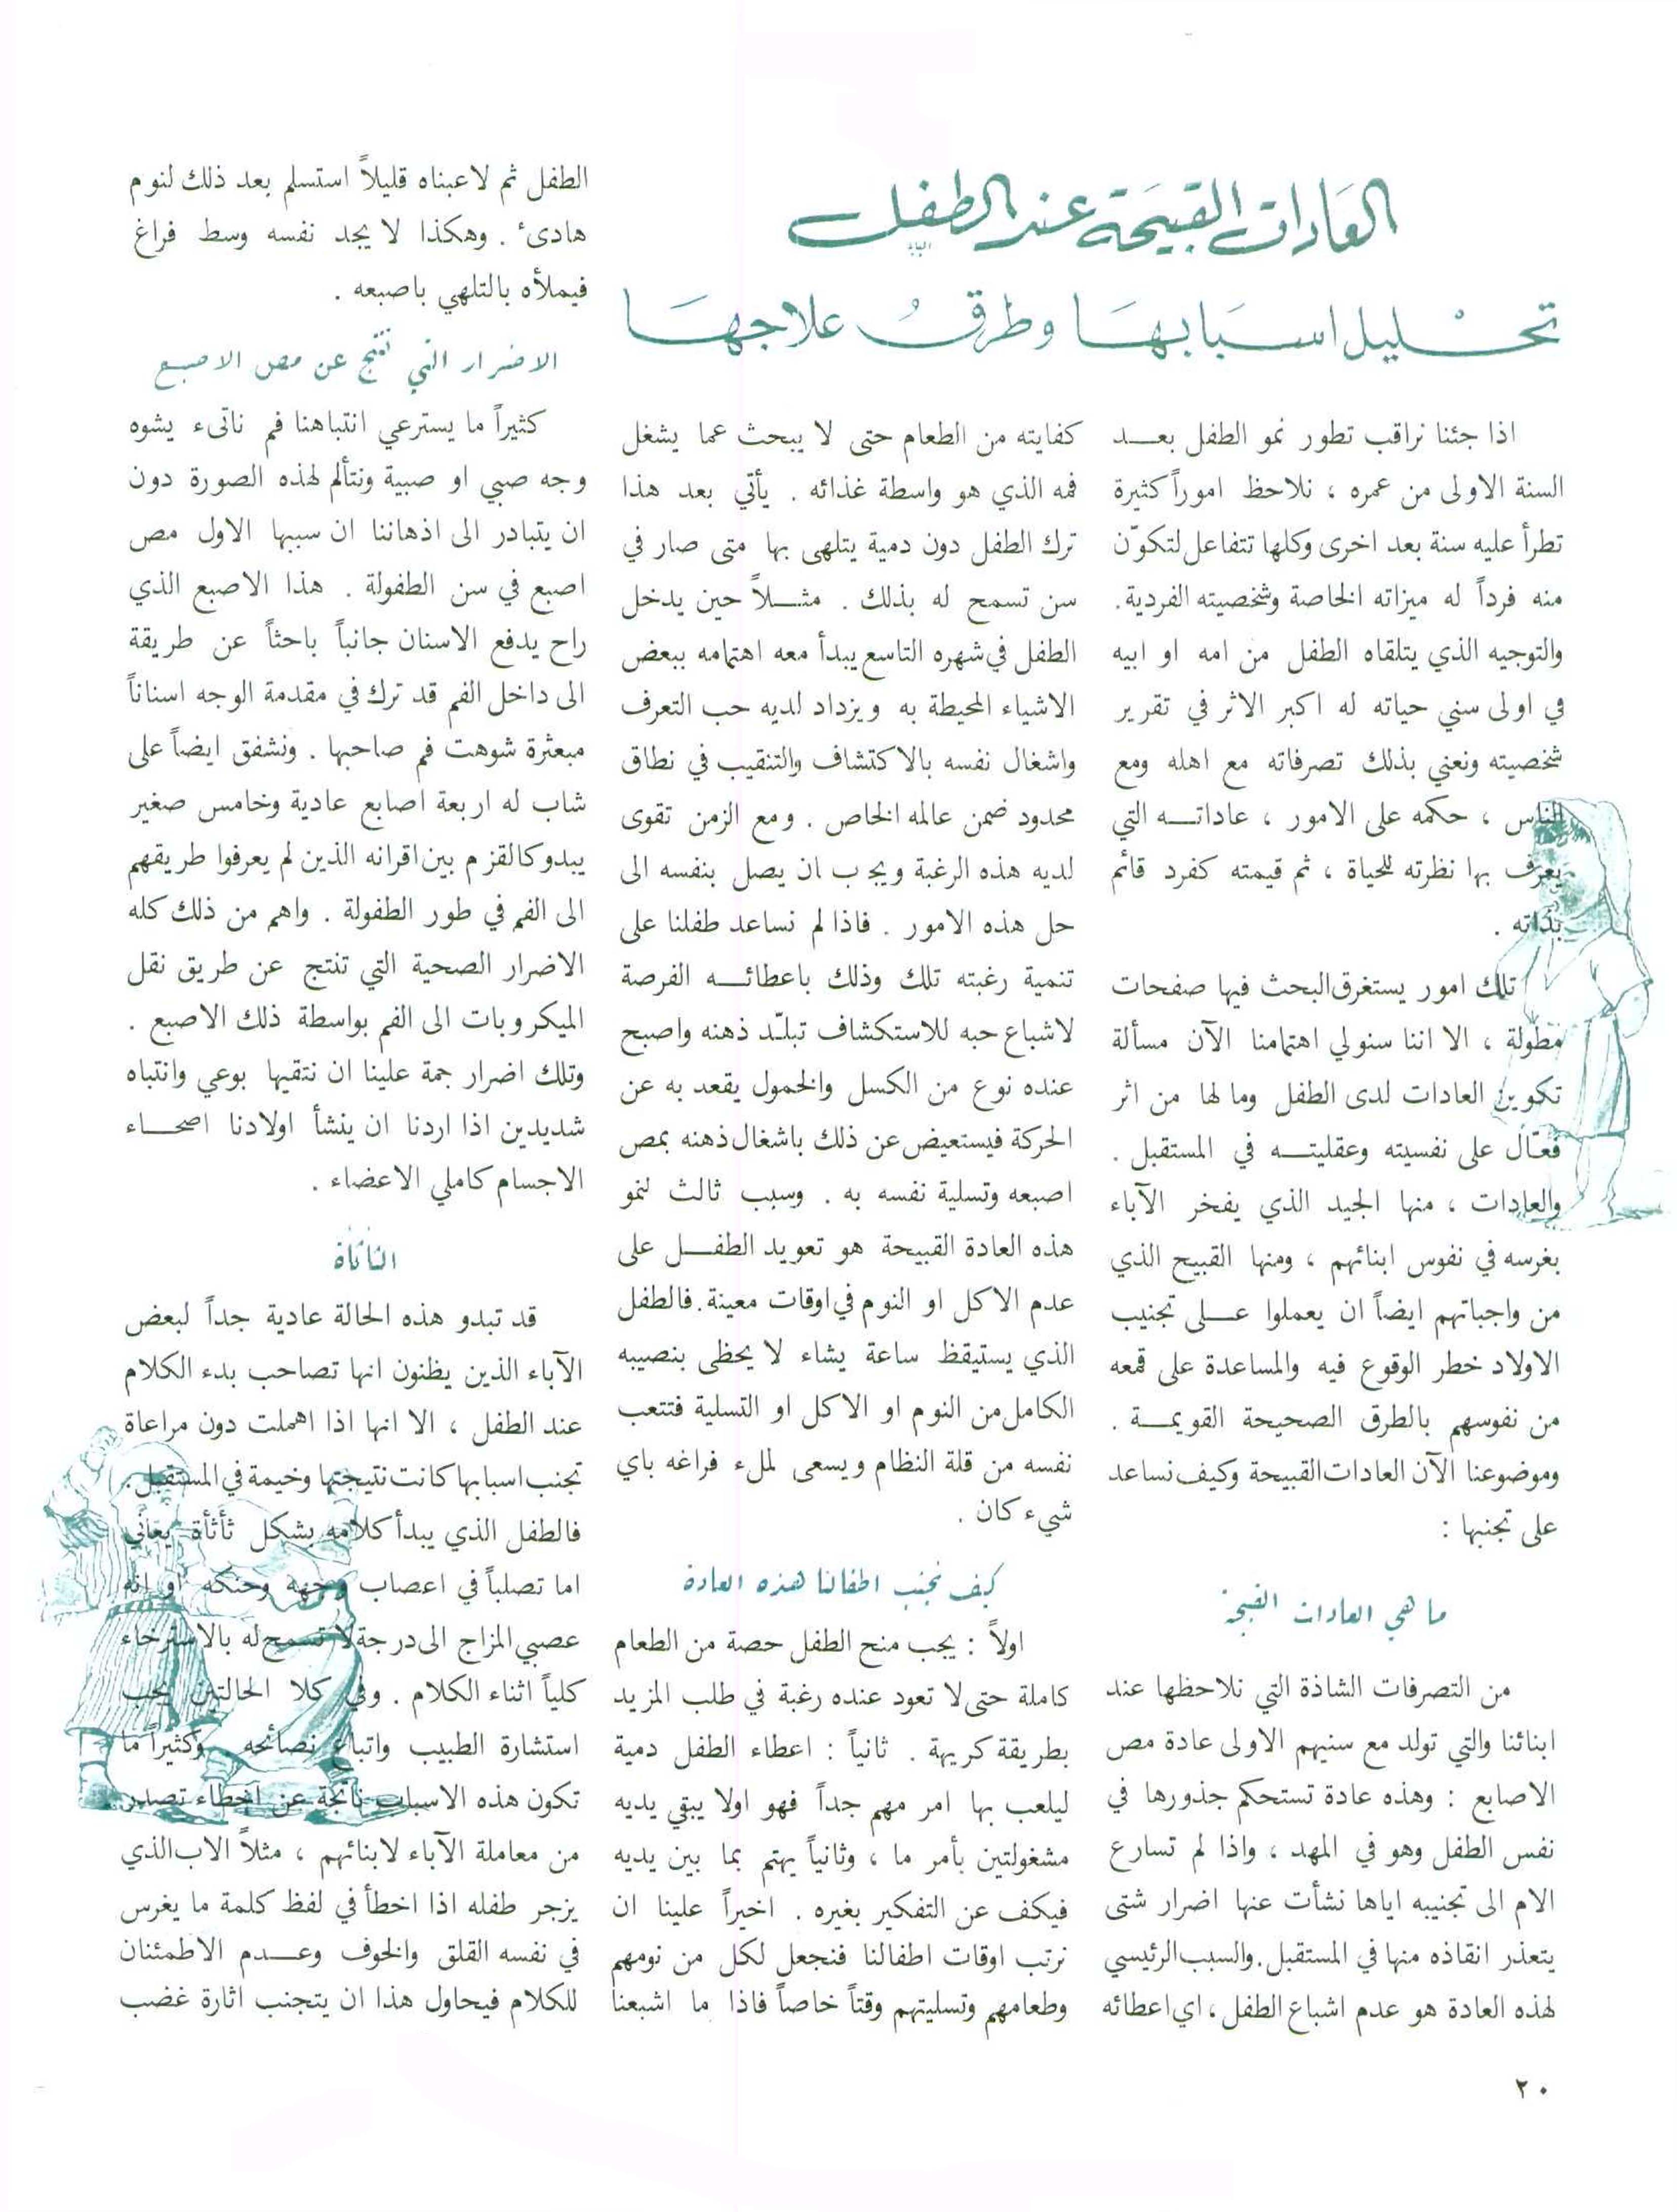 العادات القبيحة عند الطفل
تحليل اسبابها وطرق علاجها
اذا جئنا نراقب تطور نمو الطفل بعد
السنة الاولى من عمره ، نلاحظ اموراً كثيرة
تطرأ عليه سنة بعد اخرى وكلها تتفاعل لتكوّن
منه فرداً له ميزاته الخاصة وشخصيته الفردية.
والتوجيه الذي يتلقاه الطفل من امه او ابيه
في اولى سني حياته له اكبر الاثر في تقرير
شخصيته ونعني بذلك تصرفاته مع اهله ومع
الناس ، حكمه على الامور ، عاداته التي
يعرف بها نظرته للحياة ، ثم قيمته كفرد قائم
بذاته .
تلك امور يستغرق البحث فيها صفحات
مطولة ، الا اننا سنولي اهتمامنا الآن مسألة
تكوين العادات لدى الطفل وما لها من اثر
فعّال على نفسيته وعقليته في المستقبل .
والعادات ، منها الجيد الذي يفخر الآباء
بغرسه في نفوس ابنائهم ، ومنها القبيح الذي
من واجباتهم ايضاً ان يعملوا على تجنيب
الاولاد خطر الوقوع فيه والمساعدة على قمعه
من نفوسهم بالطرق الصحيحة القويمة .
وموضوعنا الآن العادات القبيحة وكيف نساعد
على تجنبها :
ما هي العادات القبيحة
من التصرفات الشاذة التي نلاحظها عند
ابنائنا والتي تولد مع سنيهم الاولى عادة مص
الاصابع : وهذه عادة تستحكم جذورها في
نفس الطفل وهو في المهد ، واذا لم تسارع
الام الى تجنيبه اياها نشأت عنها اضرار شتى
يتعذر انقاذه منها في المستقبل. والسبب الرئيسي
لهذه العادة هو عدم اشباع الطفل ، اي اعطائه
كفايته من الطعام حتى لا يبحث عما يشغل
فمه الذي هو واسطة غذائه . يأتي بعد هذا
ترك الطفل دون دمية يتلهى بها متى صار في
سن تسمح له بذلك . مثلاً حين يدخل
الطفل في شهره التاسع يبدأ معه اهتمامه ببعض
الاشياء المحيطة به ويزداد لديه حب التعرف
واشغال نفسه بالاكتشاف والتنقيب في نطاق
محدود ضمن عالمه الخاص . ومع الزمن تقوى
لديه هذه الرغبة ويجب ان يصل بنفسه الى
حل هذه الامور . فاذا لم نساعد طفلنا على
تنمية رغبته تلك وذلك باعطائه الفرصة
لاشباع حبه للاستكشاف تبلّد ذهنه واصبح
عنده نوع من الكسل والخمول يقعد به عن
الحركة فيستعيض عن ذلك باشغال ذهنه بمص
اصبعه وتسلية نفسه به . وسبب ثالث لنمو
هذه العادة القبيحة هو تعويد الطفل على
عدم الاكل او النوم في اوقات معينة. فالطفل
الذي يستيقظ ساعة يشاء لا يحظى بنصيبه
الكامل من النوم او الاكل او التسلية فتتعب
نفسه من قلة النظام ويسعى لملء فراغه باي
شيء كان .
كيف نجنب اطفالنا هذه العادة
اولاً : يجب منح الطفل حصة من الطعام
كاملة حتى لا تعود عنده رغبة في طلب المزيد
بطريقة كريهة . ثانياً : اعطاء الطفل دمية
ليلعب بها امر مهم جداً فهو اولا يبقي يديه
مشغولتين بأمر ما ، وثانياً يهتم بما بين يديه
فيكف عن التفكير بغيره . اخيراً علينا ان
نرتب اوقات اطفالنا فنجعل لكل من نومهم
وطعامهم وتسليتهم وقتاً خاصاً فاذا ما اشبعنا
الطفل ثم لاعبناه قليلاً استسلم بعد ذلك لنوم
هادىء . وهكذا لا يجد نفسه وسط فراغ
فيملأه بالتلهي باصبعه .
الاضرار التي تنتج عن مص الاصبع
كثيراً ما يسترعي انتباهنا فم ناتىء يشوه
وجه صبي او صبية ونتألم لهذه الصورة دون
ان يتبادر الى اذهاننا ان سببها الاول مص
اصبع في سن الطفولة . هذا الاصبع الذي
راح يدفع الاسنان جانباً باحثاً عن طريقة
الى داخل الفم قد ترك في مقدمة الوجه اسناناً
مبعثرة شوهت فم صاحبها . ونشفق ايضاً على
شاب له اربعة اصابع عادية وخامس صغير
يبدو كالقزم بين اقرانه الذين لم يعرفوا طريقهم
الى الفم في طور الطفولة . واهم من ذلك كله
الاضرار الصحية التي تنتج عن طريق نقل
الميكروبات الى الفم بواسطة ذلك الاصبع .
وتلك اضرار جمة علينا ان نتقيها بوعي وانتباه
شديدين اذا اردنا ان ينشأ اولادنا اصحاء
الاجسام كاملي الاعضاء .
الثأثأة
قد تبدو هذه الحالة عادية جداً لبعض
الآباء الذين يظنون انها تصاحب بدء الكلام
عند الطفل ، الا انها اذا اهملت دون مراعاة
تجنب اسبابها كانت نتيجتها وخيمة في المستقبل.
فالطفل الذي يبدأ كلامه بشكل ثأثأة يعاني
اما تصلباً في اعصاب وجهه وحنكه او انه
عصبي المزاج الى درجة لا تسمح له بالاسترخاء
كلياً اثناء الكلام . وفي كلا الحالتين يجب
استشارة الطبيب واتباع نصائحه وكثيراً ما
تكون هذه الاسباب ناتجة عن اخطاء تصدر
من معاملة الآباء لابنائهم ، مثلاً الاب الذي
يزجر طفله اذا اخطأ في لفظ كلمة ما يغرس
في نفسه القلق والخوف وعدم الاطمئنان
للكلام فيحاول هذا ان يتجنب اثارة غضب
٢٠